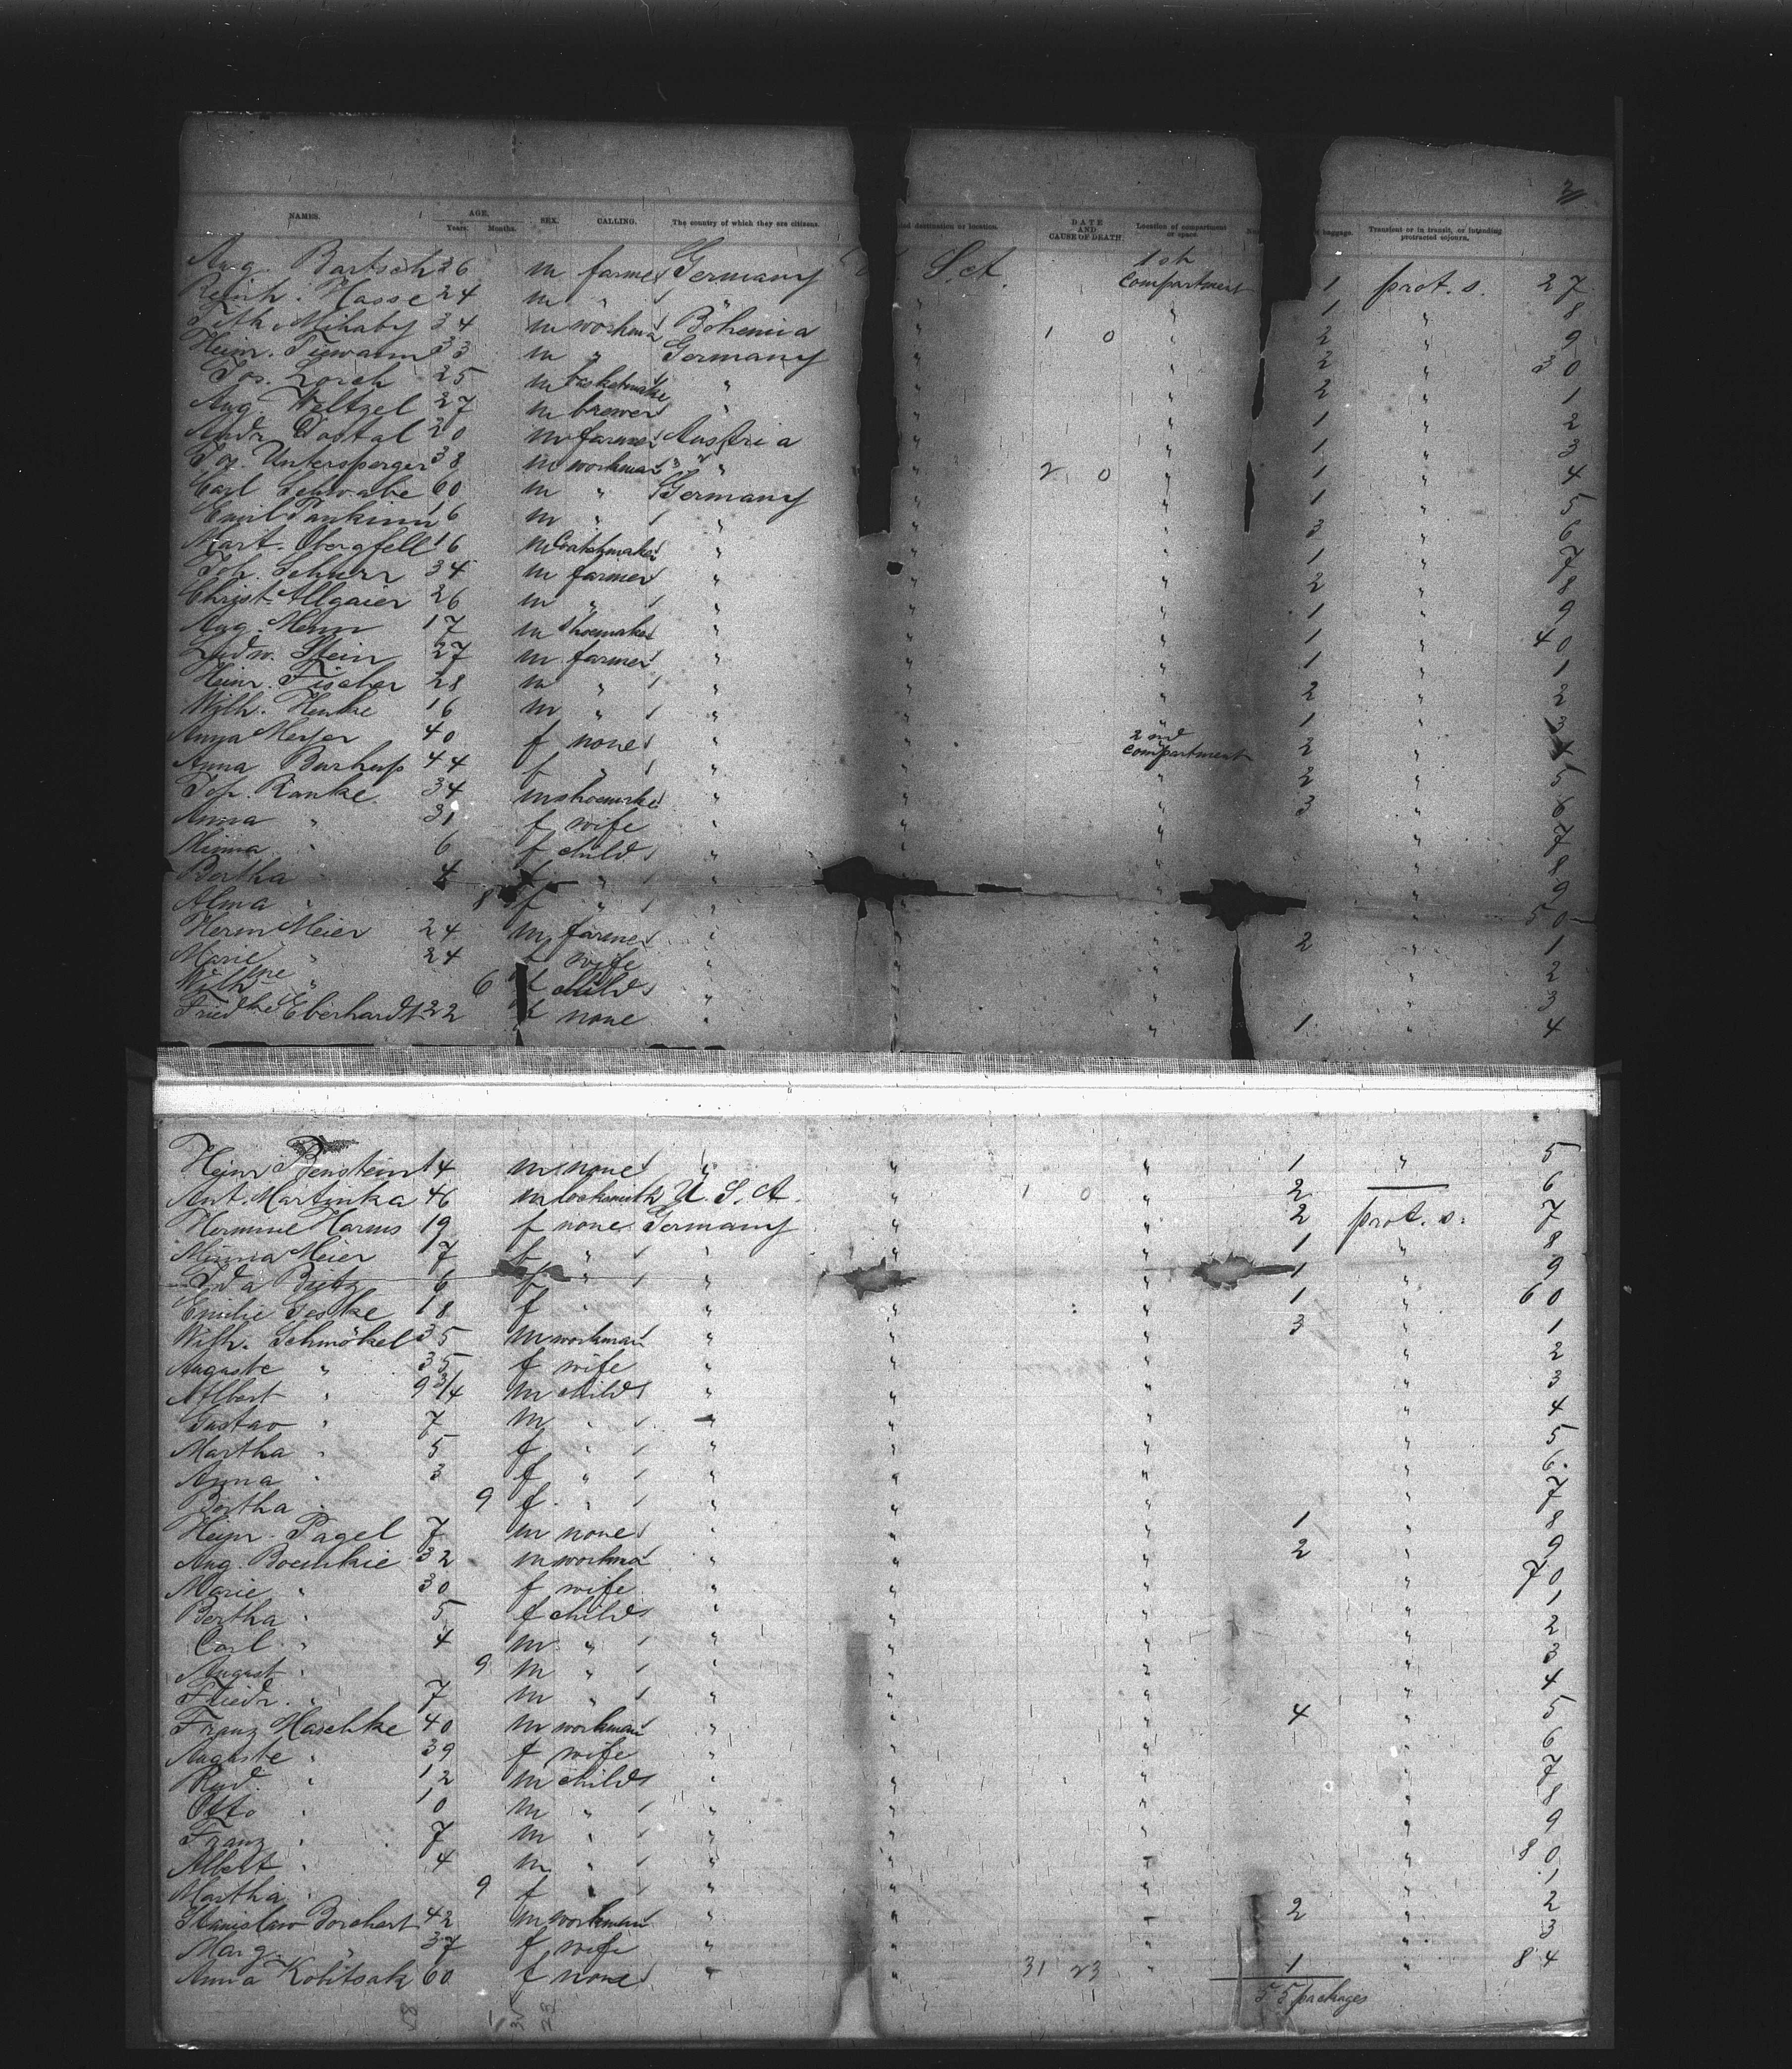 3
NAMES. AGE. Years. Months. SEX. CALLING. The country of which they are citizens. destination or location. DATE AND CAUSE OF DEATH. Location of compartment or space. baggage. Transient or in transit, or intending protracted sojourn.
Aug. Bartsch 26 m farmer Germany S.A. 1st compartment 1 prot. s. 27
Reinh. Hasse 24 m " " " 1 " 8
m workman Bohemia " 1 0 " 2 " 9
Heinr. 33 m " Germany " " 2 " 30
Jos. Lorch 25 m basketmaker " " " 2 " 1
Aug. Weltzel 27 m brewer " " " 1 " 2
Andr. Dostal 20 m farmer Austria " " 1 " 3
Jos. Untersperger 38 m workman " " 2 0 " 1 " 4
Carl Schwabe 60 m " Germany " " 1 " 5
Emil 16 m " " " " 3 " 6
Mart. Obergfell 16 m " " " 1 " 7
Joh. Schurr 34 m farmer " " " 2 " 8
Christ. Allgaier 26 m " " " " 1 " 9
Aug. 17 m shoemaker " " " 1 " 40
Ludw. Stein 27 m farmer " " " 1 " 1
Heinr. Fischer 28 m " " " " 2 " 2
Wilh. Henke 16 m " " " " 1 " 3
Anna Meyer 40 f none " " 2nd compartment 2 " 4
Anna 44 f " " " " 2 " 5
Joh. Ranke 34 m shoemaker " " " 3 " 6
Anna " 31 f wife " " " " 7
Minna " 6 f child " " " " 8
Bertha " 4 f " " " " " 9
Alma " 8 f " " " " " 50
Herm Meier 24 m farmer " " " 2 " 1
Marie " 24 f wife " " " " 2
Wilhme " 6 f child " " " " 3
Friedke Eberhardt 22 f none " " " 1 " 4
Heinr 14 m none " " " 1 " 5
Ant. Martinka 46 m locksmith U. S. A. " 1 0 " 2 — 6
Hermine Harms 19 f none Germany " " 2 prot. s. 7
Minna Meier 7 f " " " " 1 " 8
Ida 6 f " " " " 1 " 9
Emilie Geske 18 f " " " " 1 " 60
Wilh. Schmökel 35 m workman " " " 3 " 1
Auguste " 35 f wife " " " " 2
Albert " 9 3/4 m child " " " " 3
Gustav " 7 m " " " " " 4
Martha " 5 f " " " " " 5
Anna " 3 f " " " " " 6
Bertha " 9 f " " " " " 7
Heinr. Pagel 7 m none " " " 1 " 8
Aug. Boemkie 32 m workman " " " 2 " 9
Marie " 30 f wife " " " " 70
Bertha " 5 f child " " " " 1
Carl " 4 m " " " " " 2
August " 9 m " " " " " 3
Friedr. " 7 m " " " " " 4
Franz Haschke 40 m workman " " " 4 " 5
Auguste " 39 f wife " " " " 6
Rud. " 12 m child " " " " 7
Otto " 10 m " " " " " 8
Franz " 7 m " " " " " 9
Albert " 4 m " " " " " 80
Martha " 9 f " " " " " 1
Stanislaw Borchert 42 m workman " " " 2 " 2
Marg. " 37 f wife " " " " 3
Anna Kohitsak 60 f none " " 31 23 " 1 " 84
55 packages